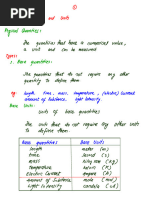 ①
and Units
Physical Quantities:
The quantities that have a numerical value,
a unit and can be measured
Types:
1. Base quantities:
The quantities that do not require any other
quantity to define them.
eg: length, time, mass, temperature, (electric) current
amount of substance, light intensity
Base Units:
Units of base quantities
The units that do not require any other units
to define them:
Base quantities Base Units
length meter (m)
time second (s)
mass kilogram (kg)
temperature kelvin (K)
Electric Current ampere (A)
amount of substance mole (mol)
light intensity candela (cd)